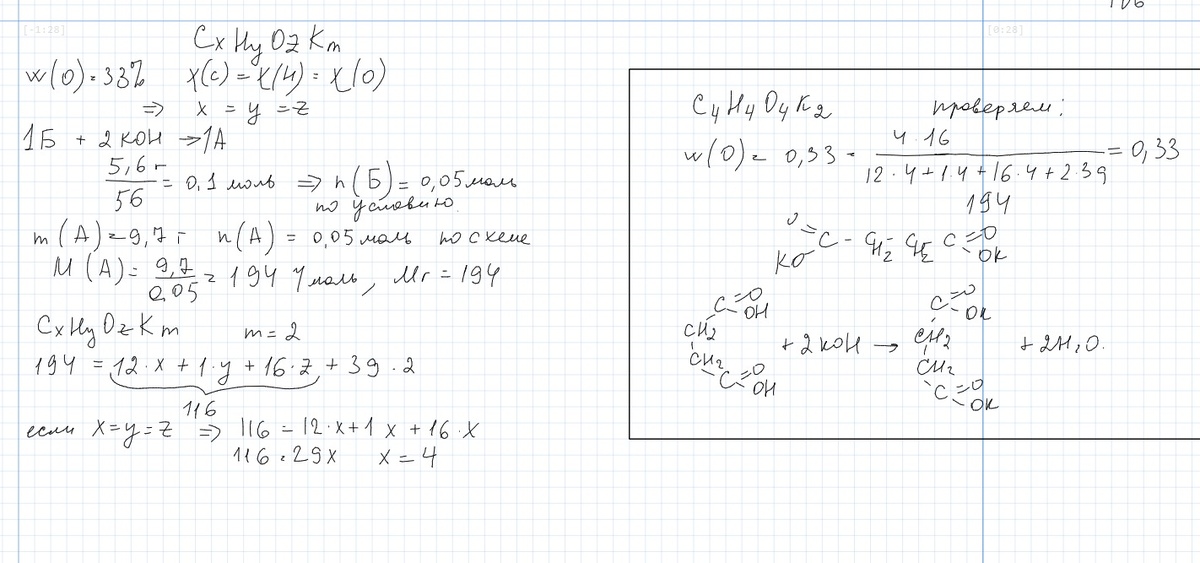 [-1:28]
[0:28]
CxHyOzKm
w(O) = 33% χ(C) = χ(H) = χ(O)
⇒ x = y = z
1Б + 2KOH → 1A
5,6 г / 56 = 0,1 моль ⇒ n(Б) = 0,05 моль
по условию.
m(A) = 9,7 г n(A) = 0,05 моль по схеме
M(A) = 9,7 / 0,05 = 194 г/моль, Mr = 194
CxHyOzKm m = 2
194 = 12·x + 1·y + 16·z + 39·2
116
если x = y = z ⇒ 116 = 12·x + 1x + 16·x
116 = 29x x = 4
C4H4O4K2 проверяем:
w(O) = 0,33 = 4·16 / 12·4+1·4+16·4+2·39 = 0,33
194
O=C(KO) - CH2 - CH2 C(=O)-OK
C(=O)-OH
CH2
CH2
C(=O)-OH
+ 2KOH →
C(=O)-OK
CH2
CH2
C(=O)-OK
+ 2H2O.